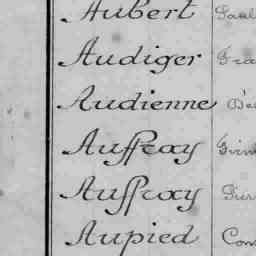 Aubert
Audiger
Audienne
Auffray
Auffray
Aupied